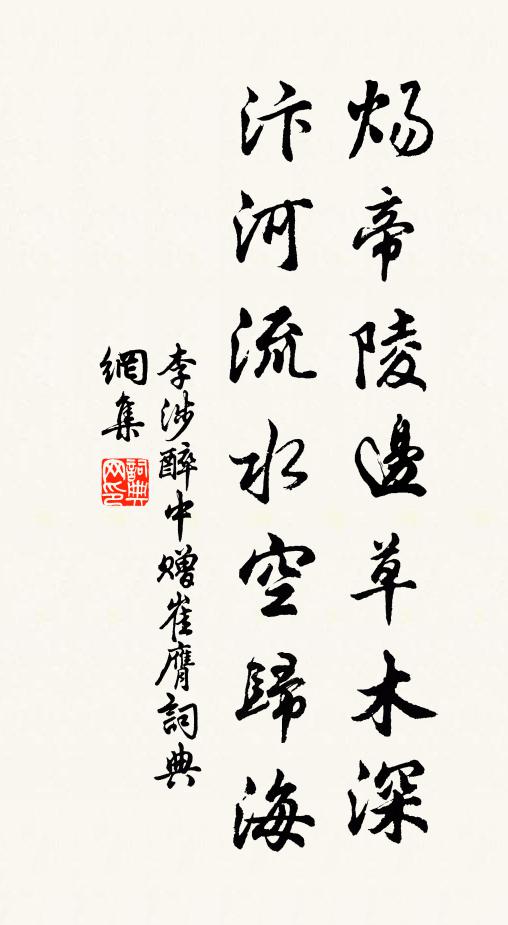 煬帝陵邊草木深
汴河流水空歸海
李涉醉中贈崔膺詞典
網集
詞典
网印